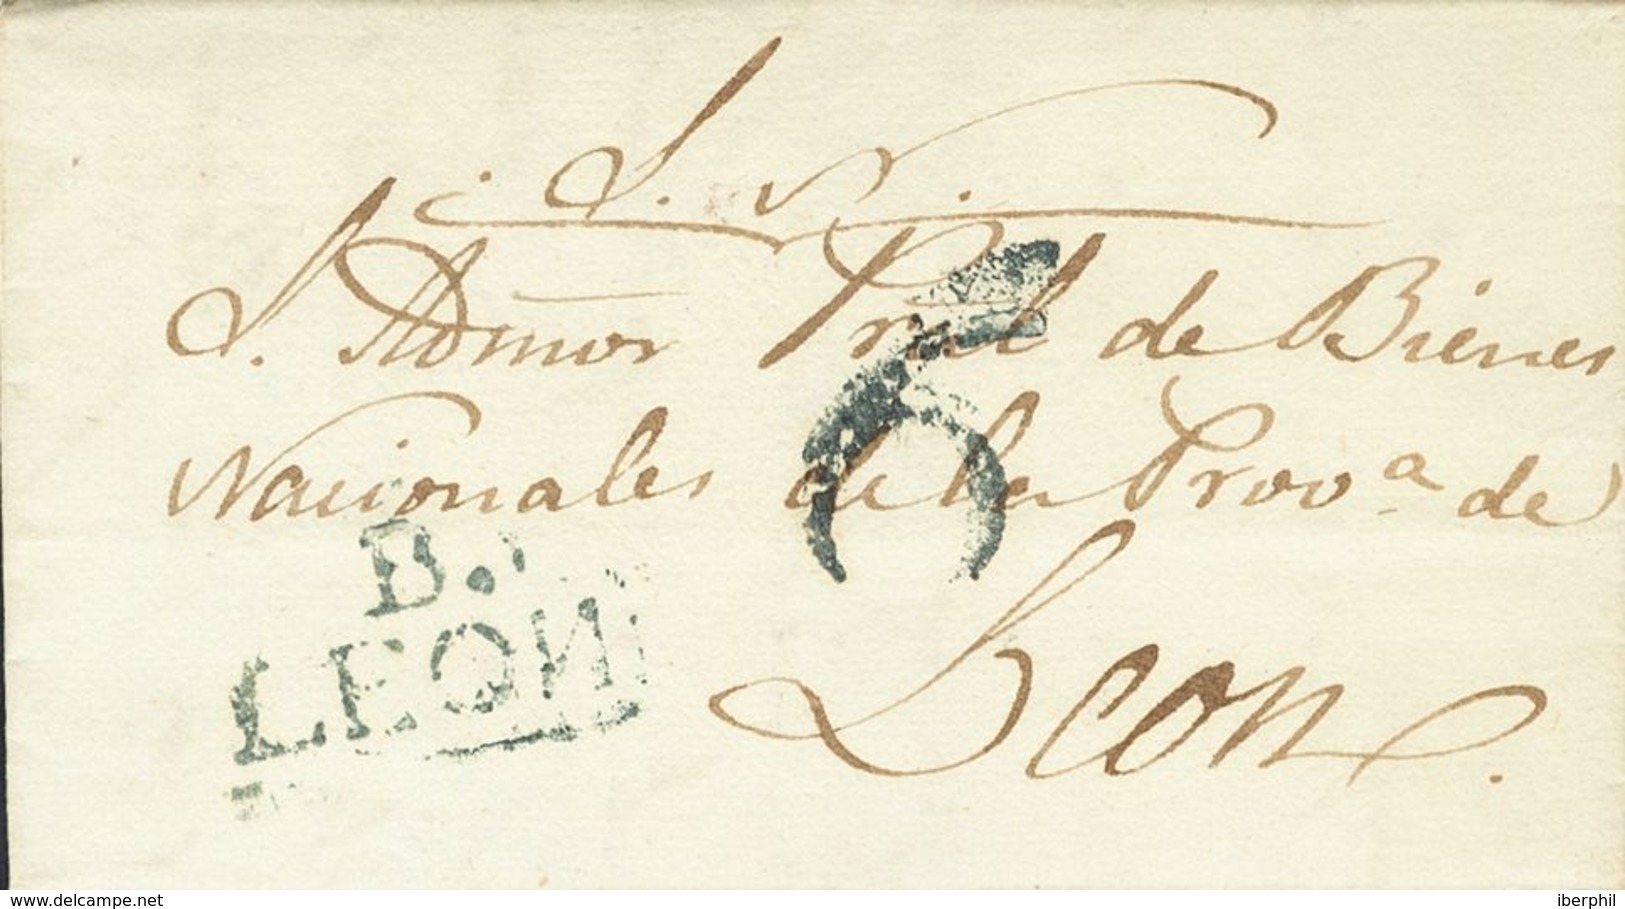 S. N.
S. Admor Pral de Bienes
Nacionales de la Prov.a de
Leon.
6
B.
LEON
www.delcampe.net
iberphil